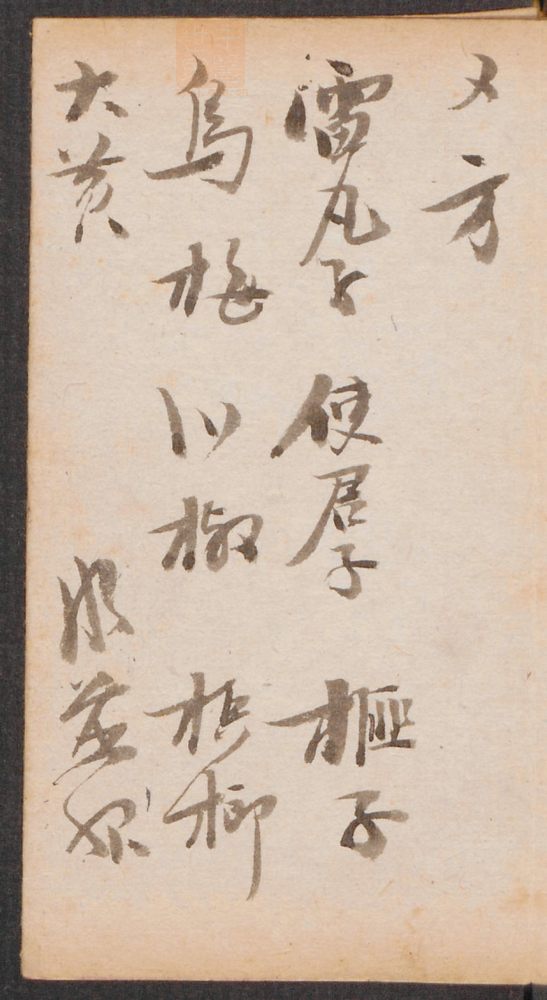 又方
雷丸子 使君子 榧子
烏梅 川椒 梹榔
大黄